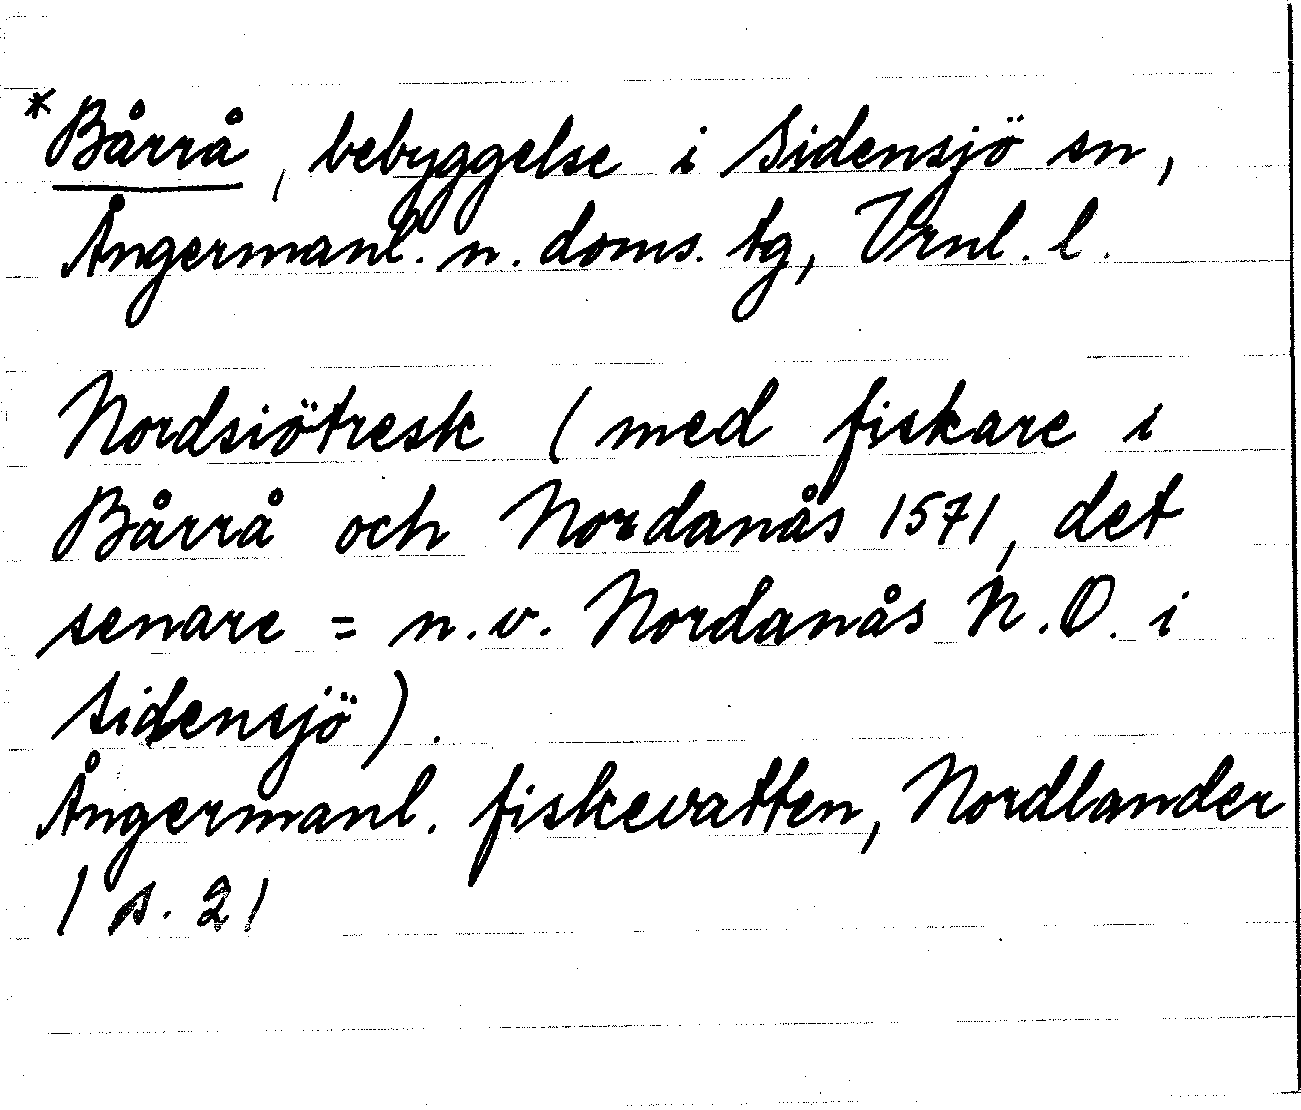 *Bårrå, bebyggelse i Sidensjö sn,
Ångermanl. n. doms. tg, Vrnl. l.
Nordsiötresk (med fiskare i
Bårrå och Nordanås 1571, det
senare = n.v. Nordanås N.O. i
Sidensjö).
Ångermanl. fiskevatten, Nordlander
1 s. 21